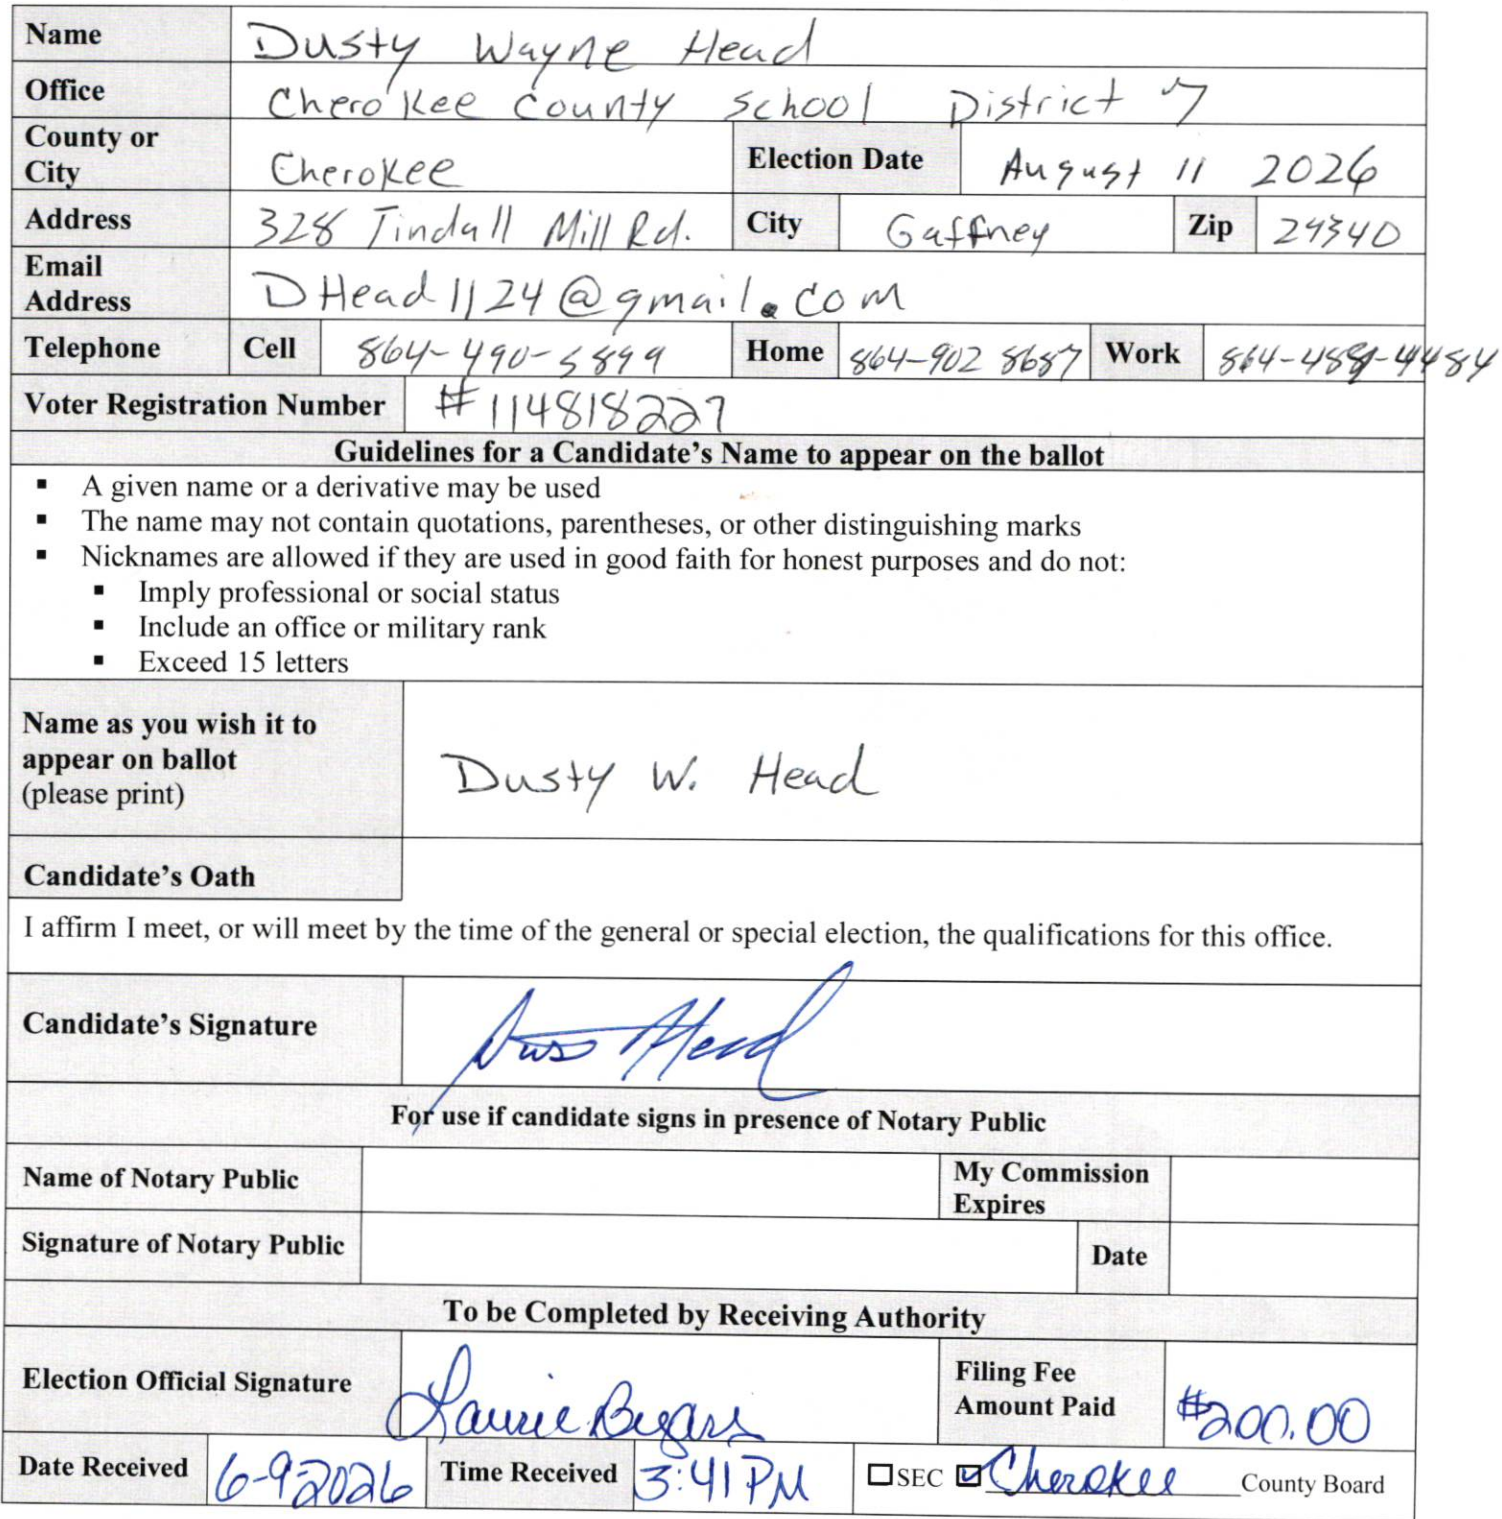 Name Dusty Wayne Head
Office Cherokee County School District 7
County or City Cherokee Election Date August 11 2026
Address 328 Tindall Mill Rd. City Gaffney Zip 29340
Email Address DHead1124@gmail.com
Telephone Cell 864-490-5899 Home 864-902 8687 Work 864-489-4484
Voter Registration Number #114818227
Guidelines for a Candidate's Name to appear on the ballot
▪ A given name or a derivative may be used
▪ The name may not contain quotations, parentheses, or other distinguishing marks
▪ Nicknames are allowed if they are used in good faith for honest purposes and do not:
▪ Imply professional or social status
▪ Include an office or military rank
▪ Exceed 15 letters
Name as you wish it to
appear on ballot
(please print)
Dusty W. Head
Candidate's Oath
I affirm I meet, or will meet by the time of the general or special election, the qualifications for this office.
Candidate's Signature Head
For use if candidate signs in presence of Notary Public
Name of Notary Public My Commission Expires
Signature of Notary Public Date
To be Completed by Receiving Authority
Election Official Signature Laurie Byars Filing Fee Amount Paid $200.00
Date Received 6-9-2026 Time Received 3:41 PM ☐ SEC ☑ Cherokee County Board